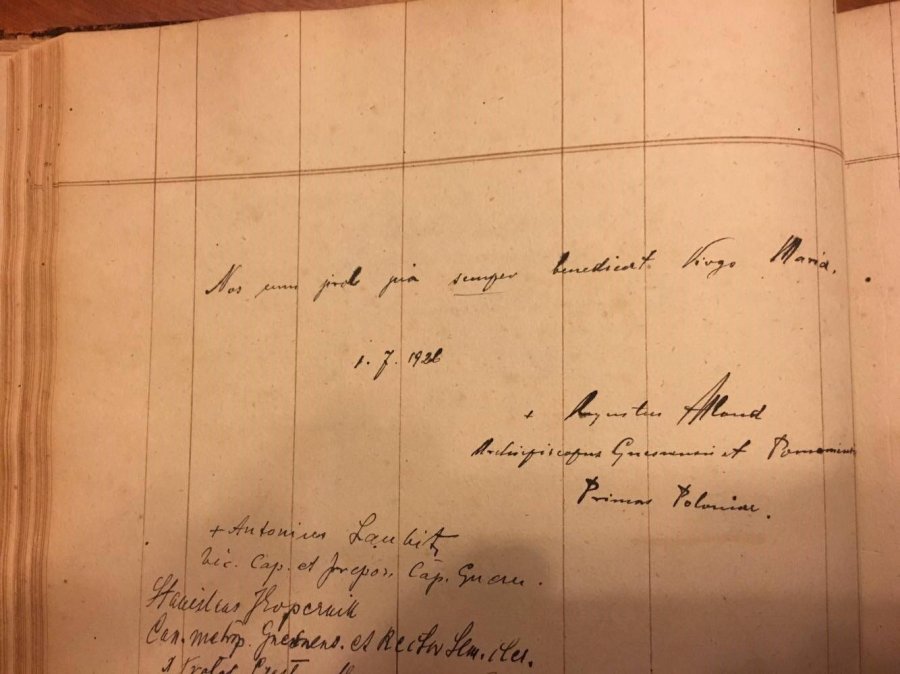 Nos cum prole pia semper benedicat Virgo Maria.
1. 7. 1926
+ Augustus Hlond
Archiepiscopus Gnesnensis et Posnaniensis
Primas Poloniae.
+ Antonius Laubitz
Vic. Cap. et prepos. Cap. Gnesn.
Stanislaus Kopernik
Can. metrop. Gnesnens. et Rector Sem. cler.